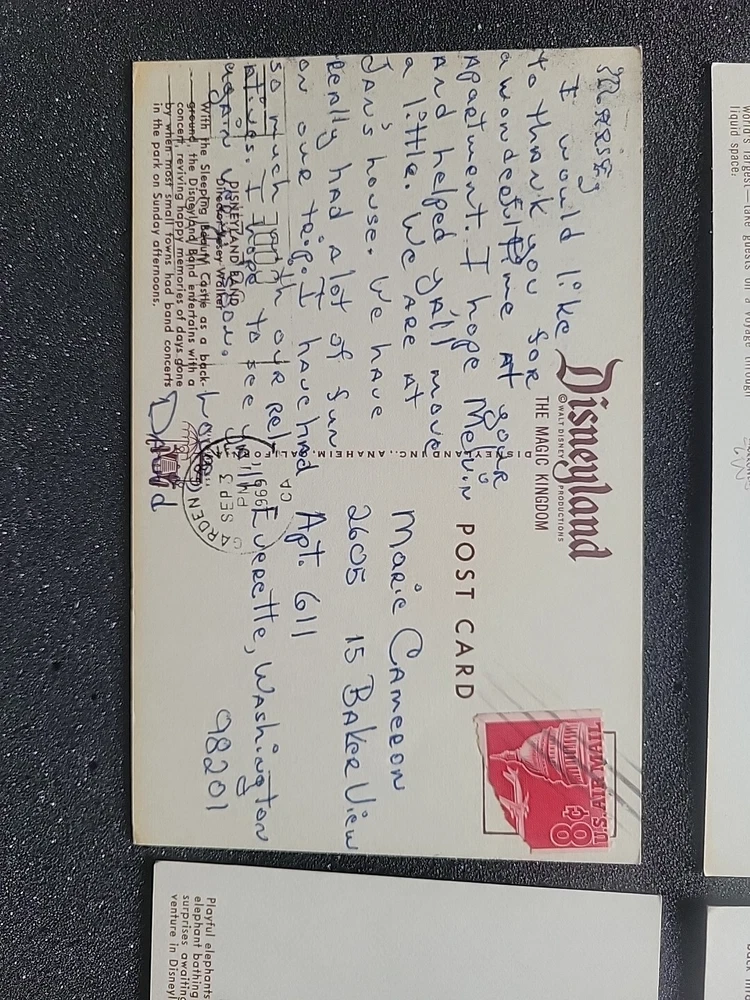 Disneyland
© WALT DISNEY PRODUCTIONS
THE MAGIC KINGDOM
POST CARD
U.S. AIR MAIL
8¢
I would like
to thank you for
a wonderful time at your
Apartment. I hope Melvin
And helped yA'll move
a little. We are at
JAN's house. We have
really had alot of fun
on our trip. I have had
so much with our rel
atives. I hope to see yA'll
again soon.
Love
David
Marie Cameron
2605 15 Baker View
Apt. 611
Everette, Washington
98201
DISNEYLAND BAND
Director Vesey Walker
With the Sleeping Beauty Castle as a back-
ground, the Disneyland Band entertains with a
concert, reviving happy memories of days gone
by when most small towns had band concerts
in the park on Sunday afternoons.
DISNEYLAND, INC., ANAHEIM, CALIFORNIA
GARDEN
CA
PM
SEP 3
World's largest—take guests on a voyage through
liquid space.
Playful elephants
elephant bathing
surprises awaiting
venture in Disney